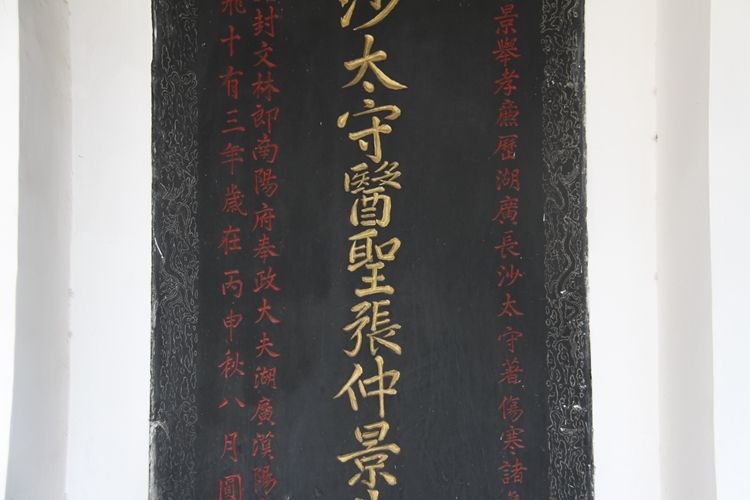 景舉孝廉歷湖廣長沙太守著傷寒諸
沙太守醫聖張仲景
封文林郎南陽府奉政大夫湖廣漢陽
飛十有三年歲在丙申秋八月圓